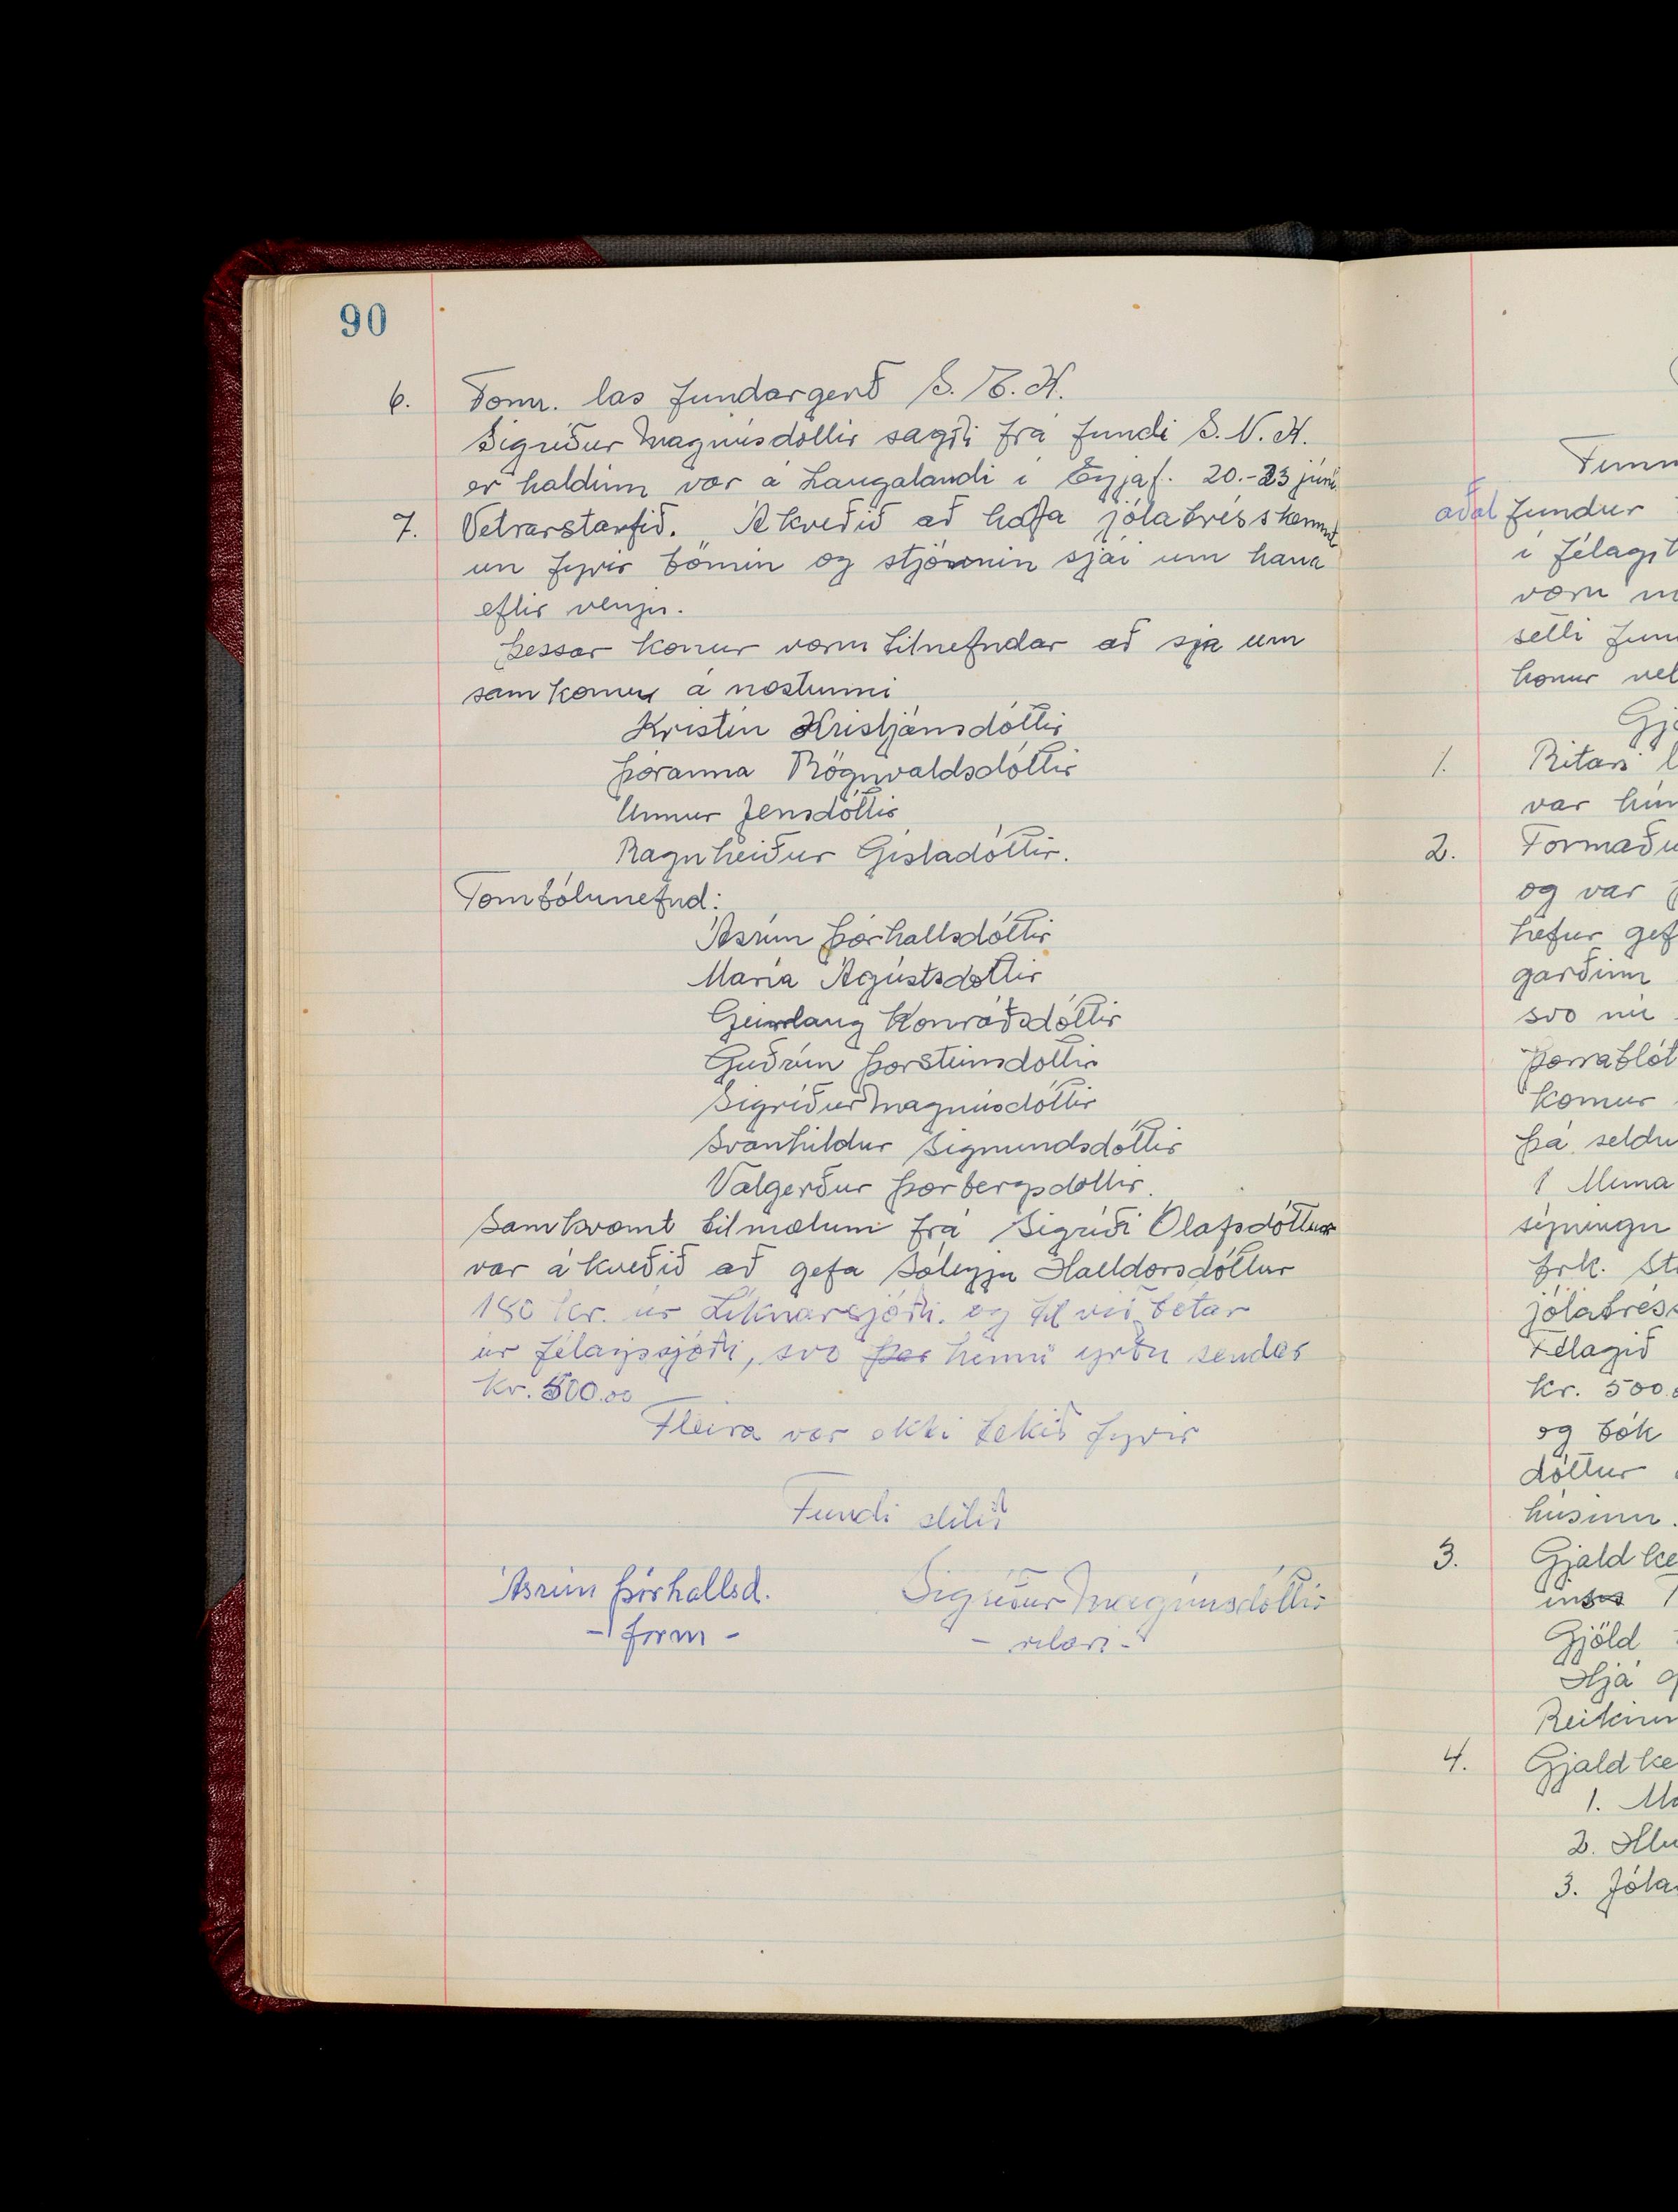 90
6. Form. las fundargerð S. B. H.
Sigríður Magnúsdóttir sagði frá fundi S. N. K.
er haldinn var á Laugalandi í Eyjaf. 20.-23 júní
7. Vetrarstarfið. Ákveðið að hafa jólatrésskemmt
un fyrir börnin og stjórnin sjái um hana
eftir venju.
Þessar konur voru tilnefndar að sjá um
samkomur á næstunni
Kristín Kristjánsdóttir
Þóranna Rögnvaldsdóttir
Unnur Jensdóttir
Ragnheiður Gísladóttir.
Tombólunefnd:
Ásrún Þórhallsdóttir
María Ágústsdóttir
Geirlaug Konráðsdóttir
Guðrún Þorsteinsdóttir
Sigríður Magnúsdóttir
Svanhildur Sigmundsdóttir
Valgerður Þorbergsdóttir.
Samkvæmt tilmælum frá Sigríði Ólafsdóttur
var ákveðið að gefa Sóleyju Halldórsdóttur
180 kr. úr Líknarsjóði. og til viðbótar
úr félagssjóði, svo henni yrðu sendar
Kr. 500.00
Fleira var ekki tekið fyrir
Fundi slitið
Ásrún Þórhallsd.
- form -
Sigríður Magnúsdóttir
- ritari -
aðal fundur
í félagi
voru
setti
konur vel
1. Ritari
var
2. Formaður
og var
hefur gef
garðinn
svo
Þorrablót
komur
Þá seldu
1 Muna
sýningu
frk. St
jólatréss
Félagið
Kr. 500.
og bók
dóttur
húsinu.
3. Gjaldke
Gjöld
Hjá
4. Gjaldke
1.
2.
3. Jóla